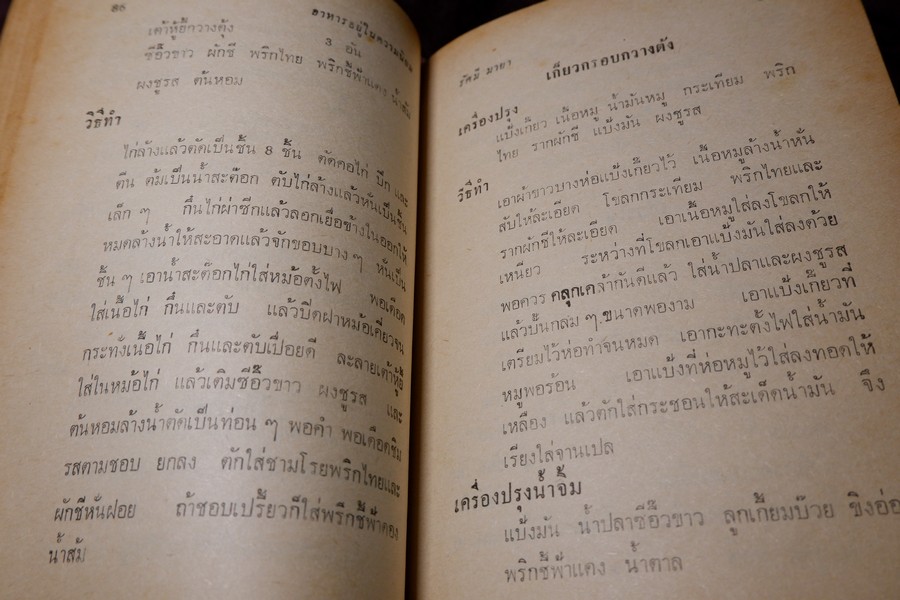 86
อาหารอยู่ในความนิยม
เต้าหู้อี้กวางตุ้ง 3 อัน
ซีอิ๊วขาว ผักชี พริกไทย พริกชี้ฟ้าแดง น้ำส้ม
ผงชูรส ต้นหอม
วิธีทำ
ไก่ล้างแล้วตัดเป็นชิ้น 8 ชิ้น ตัดคอไก่ ปีก และ
ตีน ต้มเป็นน้ำสะต๊อก ตับไก่ล้างแล้วหั่นเป็นชิ้น
เล็ก ๆ กึ๋นไก่ผ่าซีกแล้วลอกเยื่อข้างในออกให้
หมดล้างน้ำให้สะอาดแล้วจักขอบบาง ๆ หั่นเป็น
ชิ้น ๆ เอาน้ำสะต๊อกไก่ใส่หม้อตั้งไฟ พอเดือด
ใส่เนื้อไก่ กึ๋นและตับ แล้วปิดฝาหม้อเคี่ยวจน
กระทั่งเนื้อไก่ กึ๋นและตับเปื่อยดี ละลายเต้าหู้ยี้
ใส่ในหม้อไก่ แล้วเติมซีอิ๊วขาว ผงชูรส และ
ต้นหอมล้างน้ำตัดเป็นท่อน ๆ พอคำ พอเดือดชิม
รสตามชอบ ยกลง ตักใส่ชามโรยพริกไทยและ
ผักชีหั่นฝอย ถ้าชอบเปรี้ยวก็ใส่พริกชี้ฟ้าดอง
น้ำส้ม
รัศมี มายา
เกี๊ยวกรอบกวางตุ้ง
เครื่องปรุง
แป้งเกี๊ยว เนื้อหมู น้ำมันหมู กระเทียม พริก
ไทย รากผักชี แป้งมัน ผงชูรส
วิธีทำ
เอาผ้าขาวบางห่อแป้งเกี๊ยวไว้ เนื้อหมูล้างน้ำหั่น
สับให้ละเอียด โขลกกระเทียม พริกไทยและ
รากผักชีให้ละเอียด เอาเนื้อหมูใส่ลงโขลกให้
เหนียว ระหว่างที่โขลกเอาแป้งมันใส่ลงด้วย
พอควร คลุกเคล้ากันดีแล้ว ใส่น้ำปลาและผงชูรส
แล้วปั้นกลม ๆ ขนาดพองาม เอาแป้งเกี๊ยวที่
เตรียมไว้ห่อทำจนหมด เอากะทะตั้งไฟใส่น้ำมัน
หมูพอร้อน เอาแป้งที่ห่อหมูไว้ใส่ลงทอดให้
เหลือง แล้วตักใส่กระชอนให้สะเด็ดน้ำมัน จึง
เรียงใส่จานเปล
เครื่องปรุงน้ำจิ้ม
แป้งมัน น้ำปลาซีอิ๊วขาว ลูกเกี้ยมบ๊วย ขิงอ่อ
พริกชี้ฟ้าแดง น้ำตาล